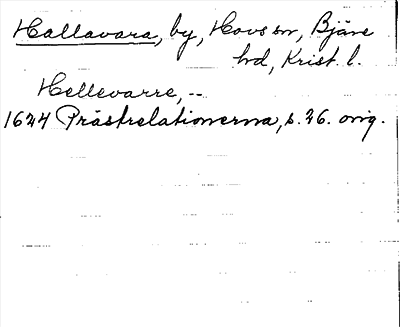 Hallavara, by, Hovs sn, Bjäre
hd, Krist. l.
Hellevarre, --
1624 Prästrelationerna, s. 26. orig.